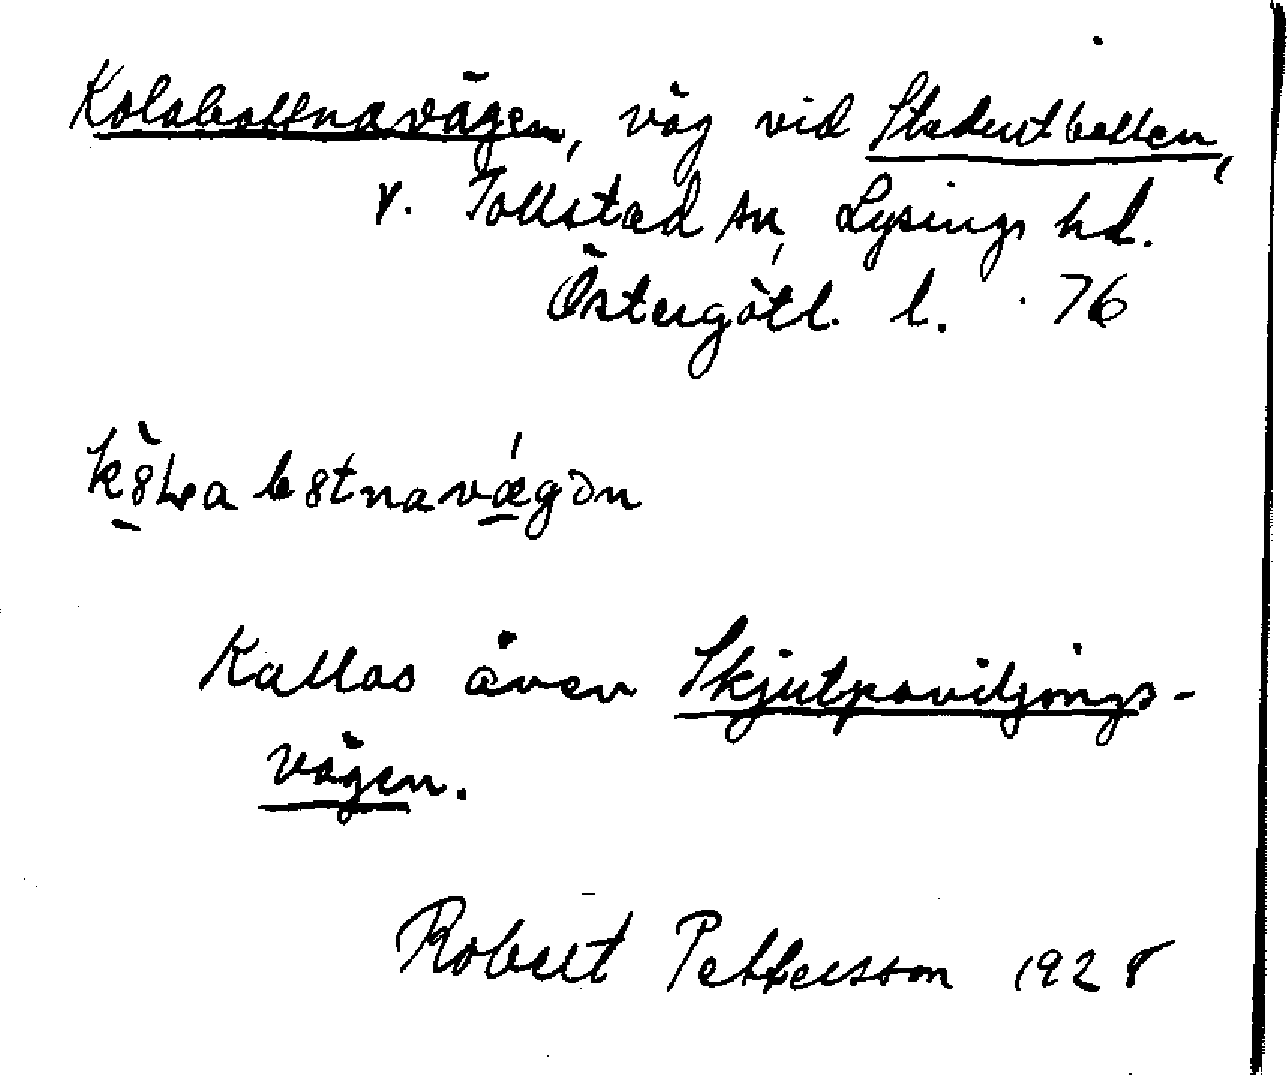 Kolabottnavägen, väg vid Studentbacken,
V. Tollstad sn, Lysings hd.
Östergötl. l. 76
Kallas även Skjutpaviljongs-
vägen.
Robert Pettersson 1928